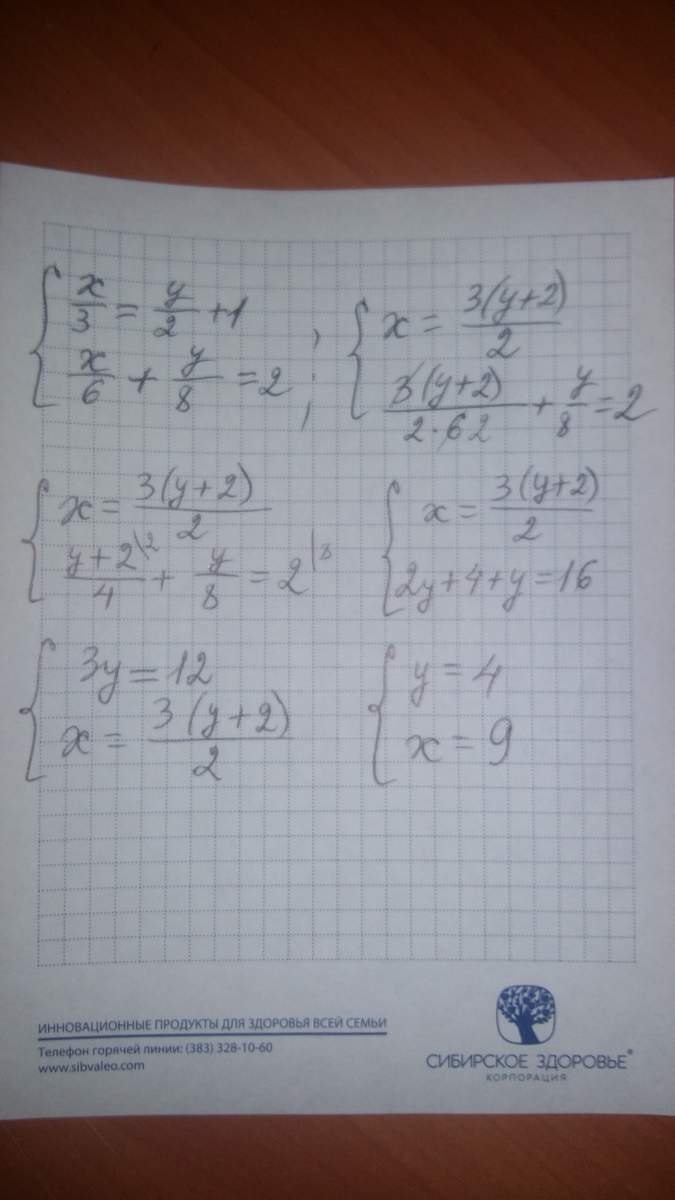 { x/3 = y/2 + 1 ; { x = 3(y+2)/2
x/6 + y/8 = 2 ; 3(y+2)/2·6 2 + y/8 = 2
{ x = 3(y+2)/2 { x = 3(y+2)/2
y+2\2/4 + y/8 = 2|8 2y+4+y=16
{ 3y = 12 { y = 4
x = 3(y+2)/2 x = 9
ИННОВАЦИОННЫЕ ПРОДУКТЫ ДЛЯ ЗДОРОВЬЯ ВСЕЙ СЕМЬИ
Телефон горячей линии: (383) 328-10-60
www.sibvaleo.com
СИБИРСКОЕ ЗДОРОВЬЕ®
КОРПОРАЦИЯ